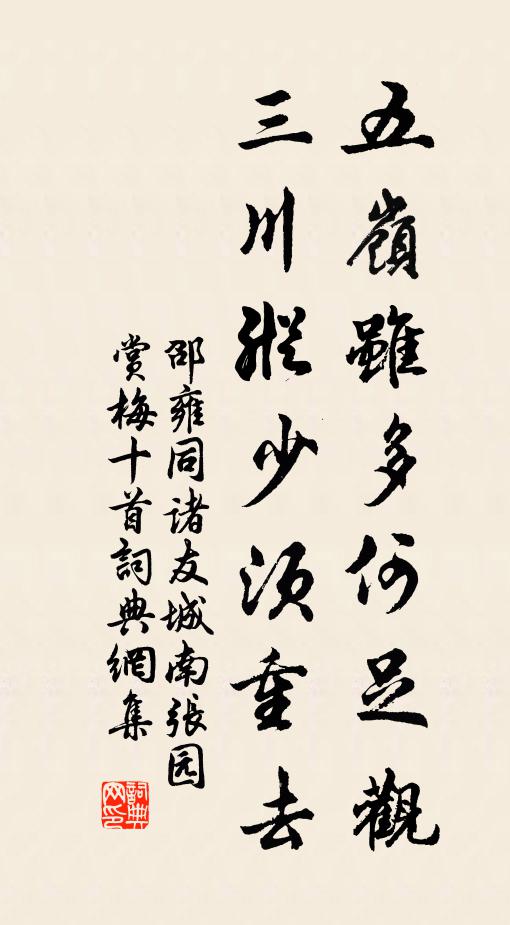 五嶺雖多何足觀
三川縱少須重去
邵雍同诸友城南張园
賞梅十首詞典網集
詞典网印